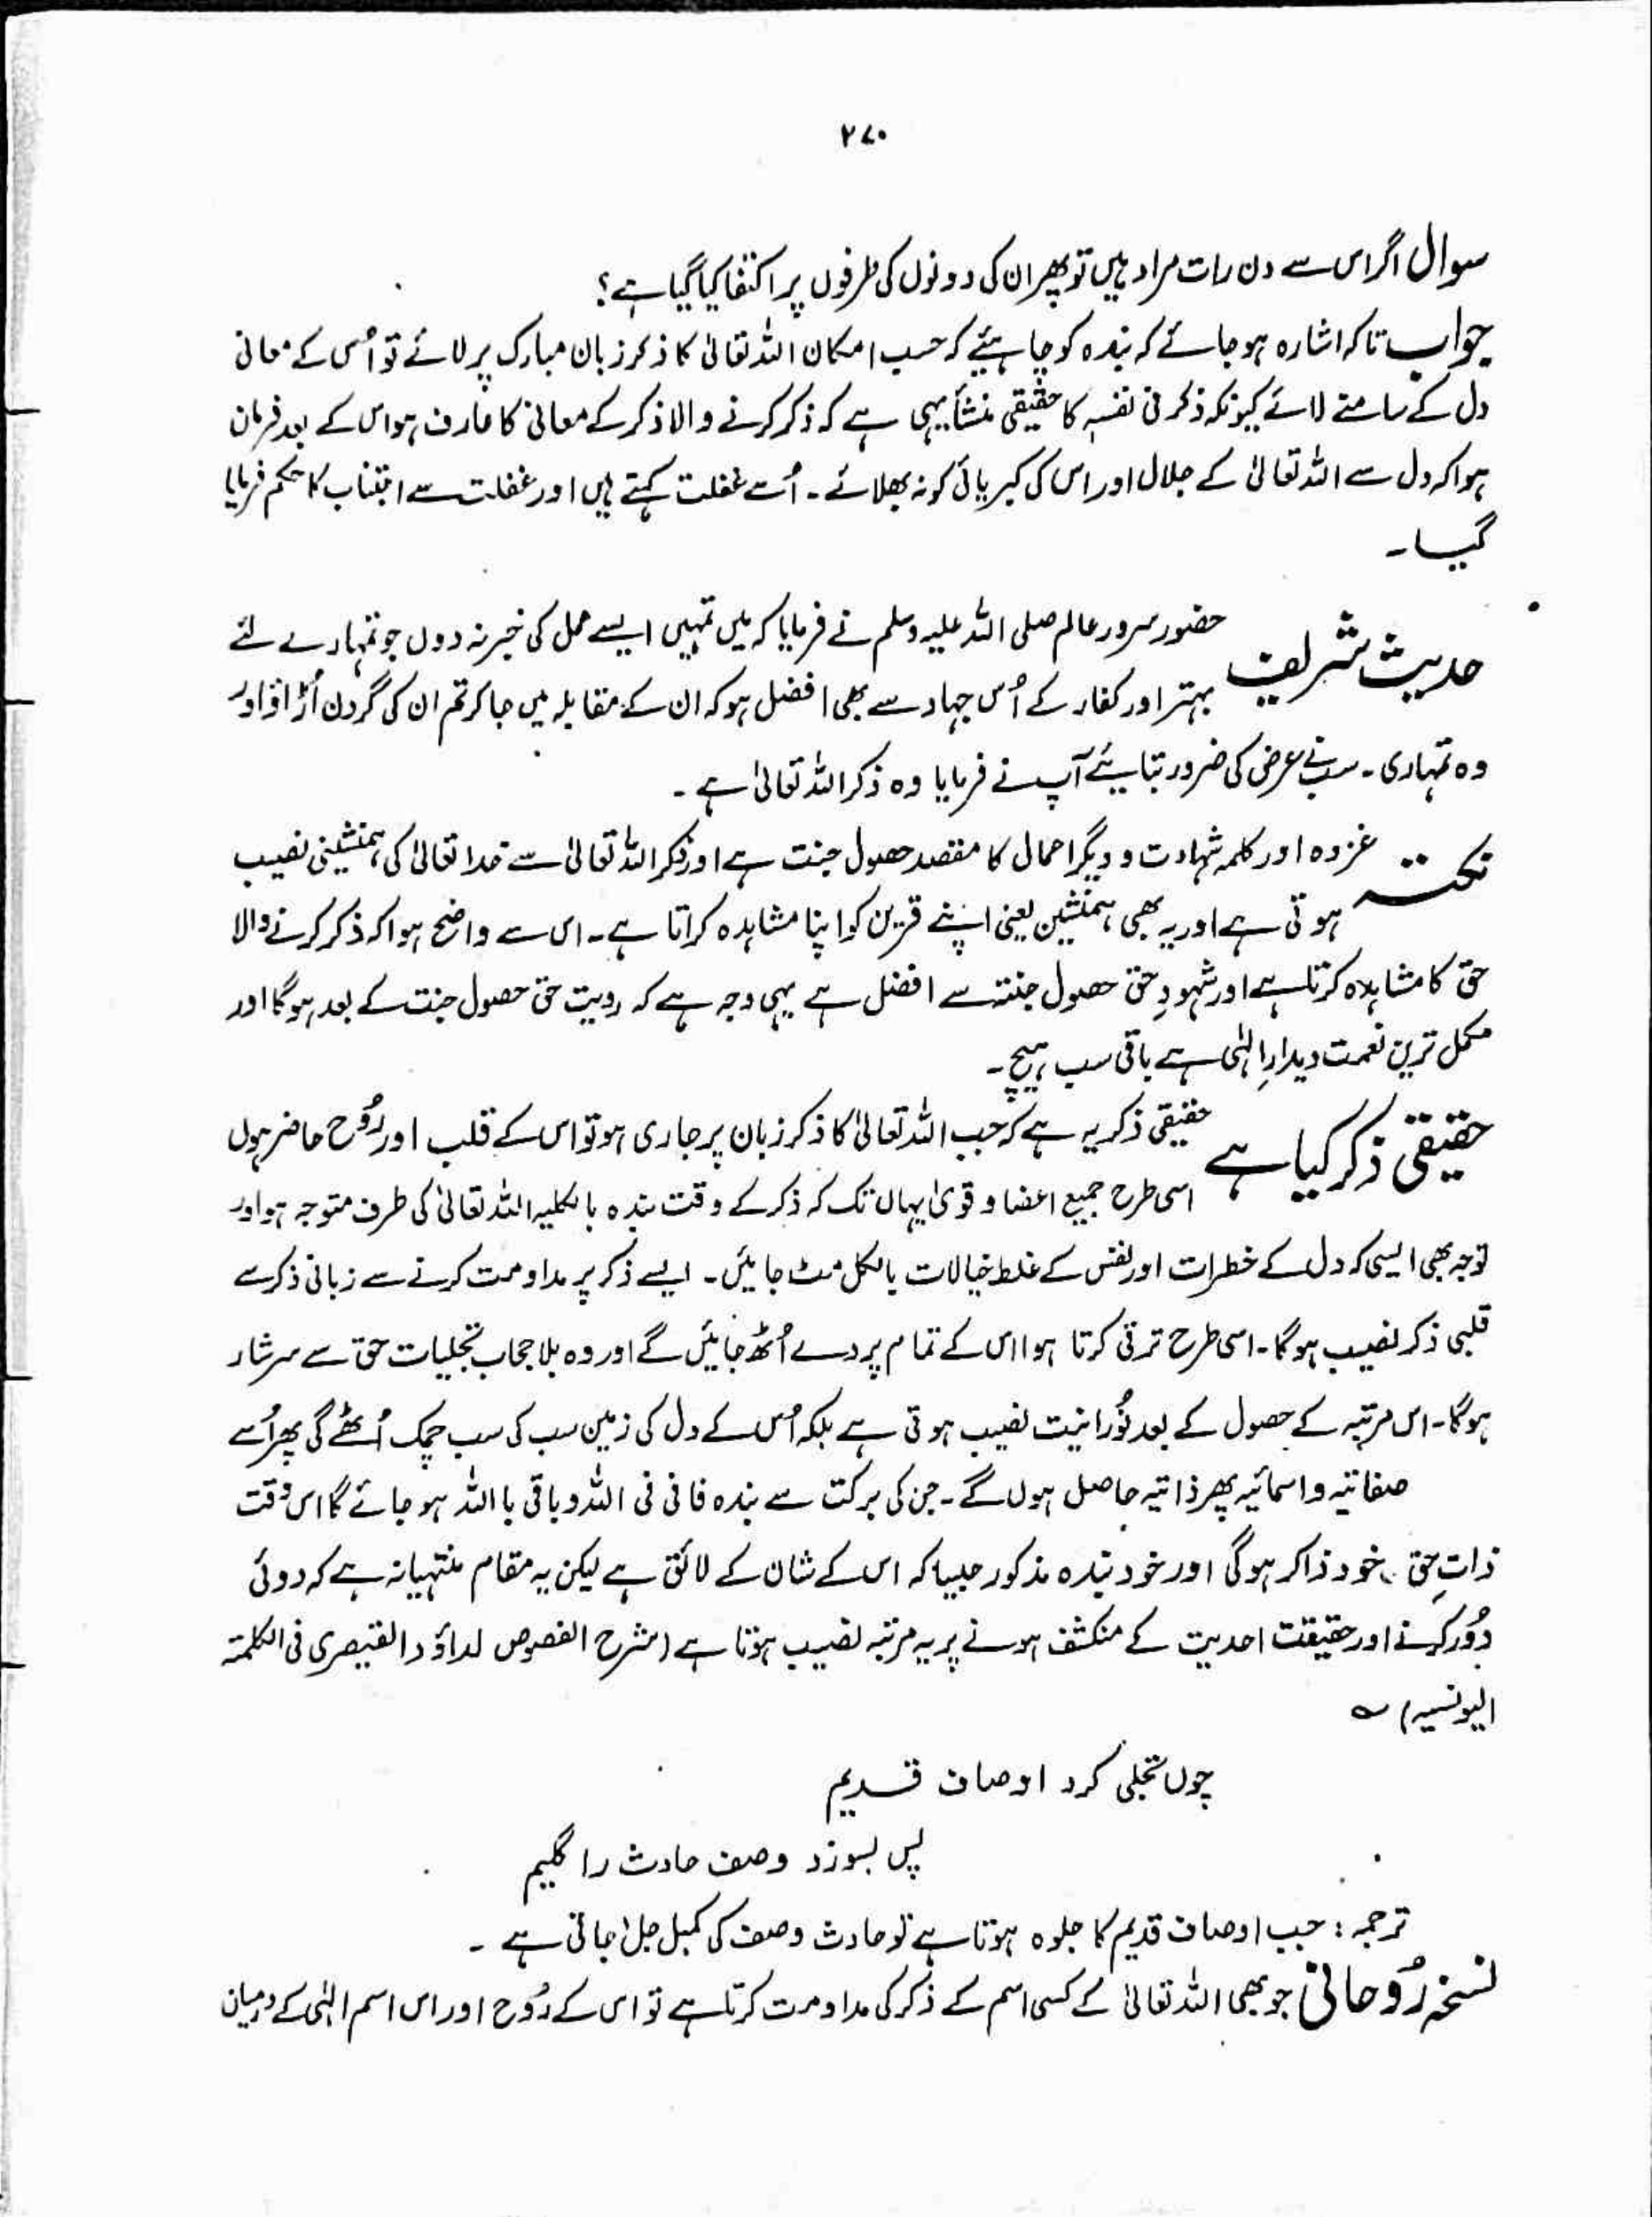 ۲۷۰
سوال اگر اس سے دن رات مراد ہیں تو پھر ان کی دونوں کی طرفوں پر اکتفا کیا گیا ہے؟
جواب تاکہ اشارہ ہو جائے کہ بندہ کو چاہیئے کہ حسب امکان اللہ تعالیٰ کا ذکر زبان مبارک پر لائے تو اُس کے معانی
دل کے سامنے لائے کیونکہ ذکر فی نفسہٖ کا حقیقی منشأ یہی ہے کہ ذکر کرنے والا ذکر کے معانی کا عارف ہو اس کے بعد فرمان
ہوا کہ دل سے اللہ تعالیٰ کے جلال اور اس کی کبریائی کو نہ بھلائے ۔ اُسے غفلت کہتے ہیں اور غفلت سے اجتناب کا حکم فرمایا
گیا ۔
حدیث شریف حضور سرور عالم صلی اللہ علیہ وسلم نے فرمایا کہ میں تمہیں ایسے عمل کی خبر نہ دوں جو تمہارے لئے
بہتر اور کفار کے اُس جہاد سے بھی افضل ہو کہ ان کے مقابلہ میں جا کر تم ان کی گردن اُڑاؤ اور
وہ تمہاری ۔ سب نے عرض کی ضرور بتایئے آپ نے فرمایا وہ ذکر اللہ تعالیٰ ہے ۔
نکتہ غزوہ اور کلمہ شہادت و دیگر اعمال کا مقصد حصول جنت ہے اور ذکر اللہ تعالیٰ سے خدا تعالیٰ کی ہمنشینی نصیب
ہوتی ہے اور یہ بھی ہمنشین یعنی اپنے قرین کو اپنا مشاہدہ کراتا ہے ۔ اس سے واضح ہوا کہ ذکر کرنے والا
حق کا مشاہدہ کرتا ہے اور شہودِ حق حصول جنت سے افضل ہے یہی وجہ ہے کہ رویت حق حصول جنت کے بعد ہوگا اور
مکمل ترین نعمت دیدارِ الٰہی ہے باقی سب ہیچ ۔
حقیقی ذکر کیا ہے حقیقی ذکر یہ ہے کہ جب اللہ تعالیٰ کا ذکر زبان پر جاری ہو تو اس کے قلب اور رُوح حاضر ہوں
اسی طرح جمیع اعضا و قویٰ یہاں تک کہ ذکر کے وقت بندہ بالکلیہ اللہ تعالیٰ کی طرف متوجہ ہو اور
توجہ بھی ایسی کہ دل کے خطرات اور نفس کے غلط خیالات بالکل مٹ جائیں ۔ ایسے ذکر پر مداومت کرنے سے زبانی ذکر سے
قلبی ذکر نصیب ہوگا ۔ اسی طرح ترقی کرتا ہوا اس کے تمام پردے اُٹھ جائیں گے اور وہ بلا حجاب تجلیات حق سے سرشار
ہوگا ۔ اس مرتبہ کے حصول کے بعد نُورانیت نصیب ہوتی ہے بلکہ اُس کے دل کی زمین سب کی سب چمک اُٹھے گی پھر اُسے
صفاتیہ و اسمائیہ پھر ذاتیہ حاصل ہوں گے ۔ جن کی برکت سے بندہ فانی فی اللہ و باقی باللہ ہو جائے گا اس وقت
ذاتِ حق خود ذاکر ہوگی اور خود بندہ مذکور جیسا کہ اس کے شان کے لائق ہے لیکن یہ مقام منتہیانہ ہے کہ دوئی
دُور کرنے اور حقیقت احدیت کے منکشف ہونے پر یہ مرتبہ نصیب ہوتا ہے (شرح الفصوص لداؤد القیصری فی الکلمۃ
الیونسیہ) ؎
چوں تجلی کرد اوصاف قدیم
پس بسوزد وصف حادث را گلیم
ترجمہ : جب اوصاف قدیم کا جلوہ ہوتا ہے تو حادث وصف کی کمبل جل جاتی ہے ۔
نسخہ رُوحانی جو بھی اللہ تعالیٰ کے کسی اسم کے ذکر کی مداومت کرتا ہے تو اس کے رُوح اور اس اسم الٰہی کے درمیان